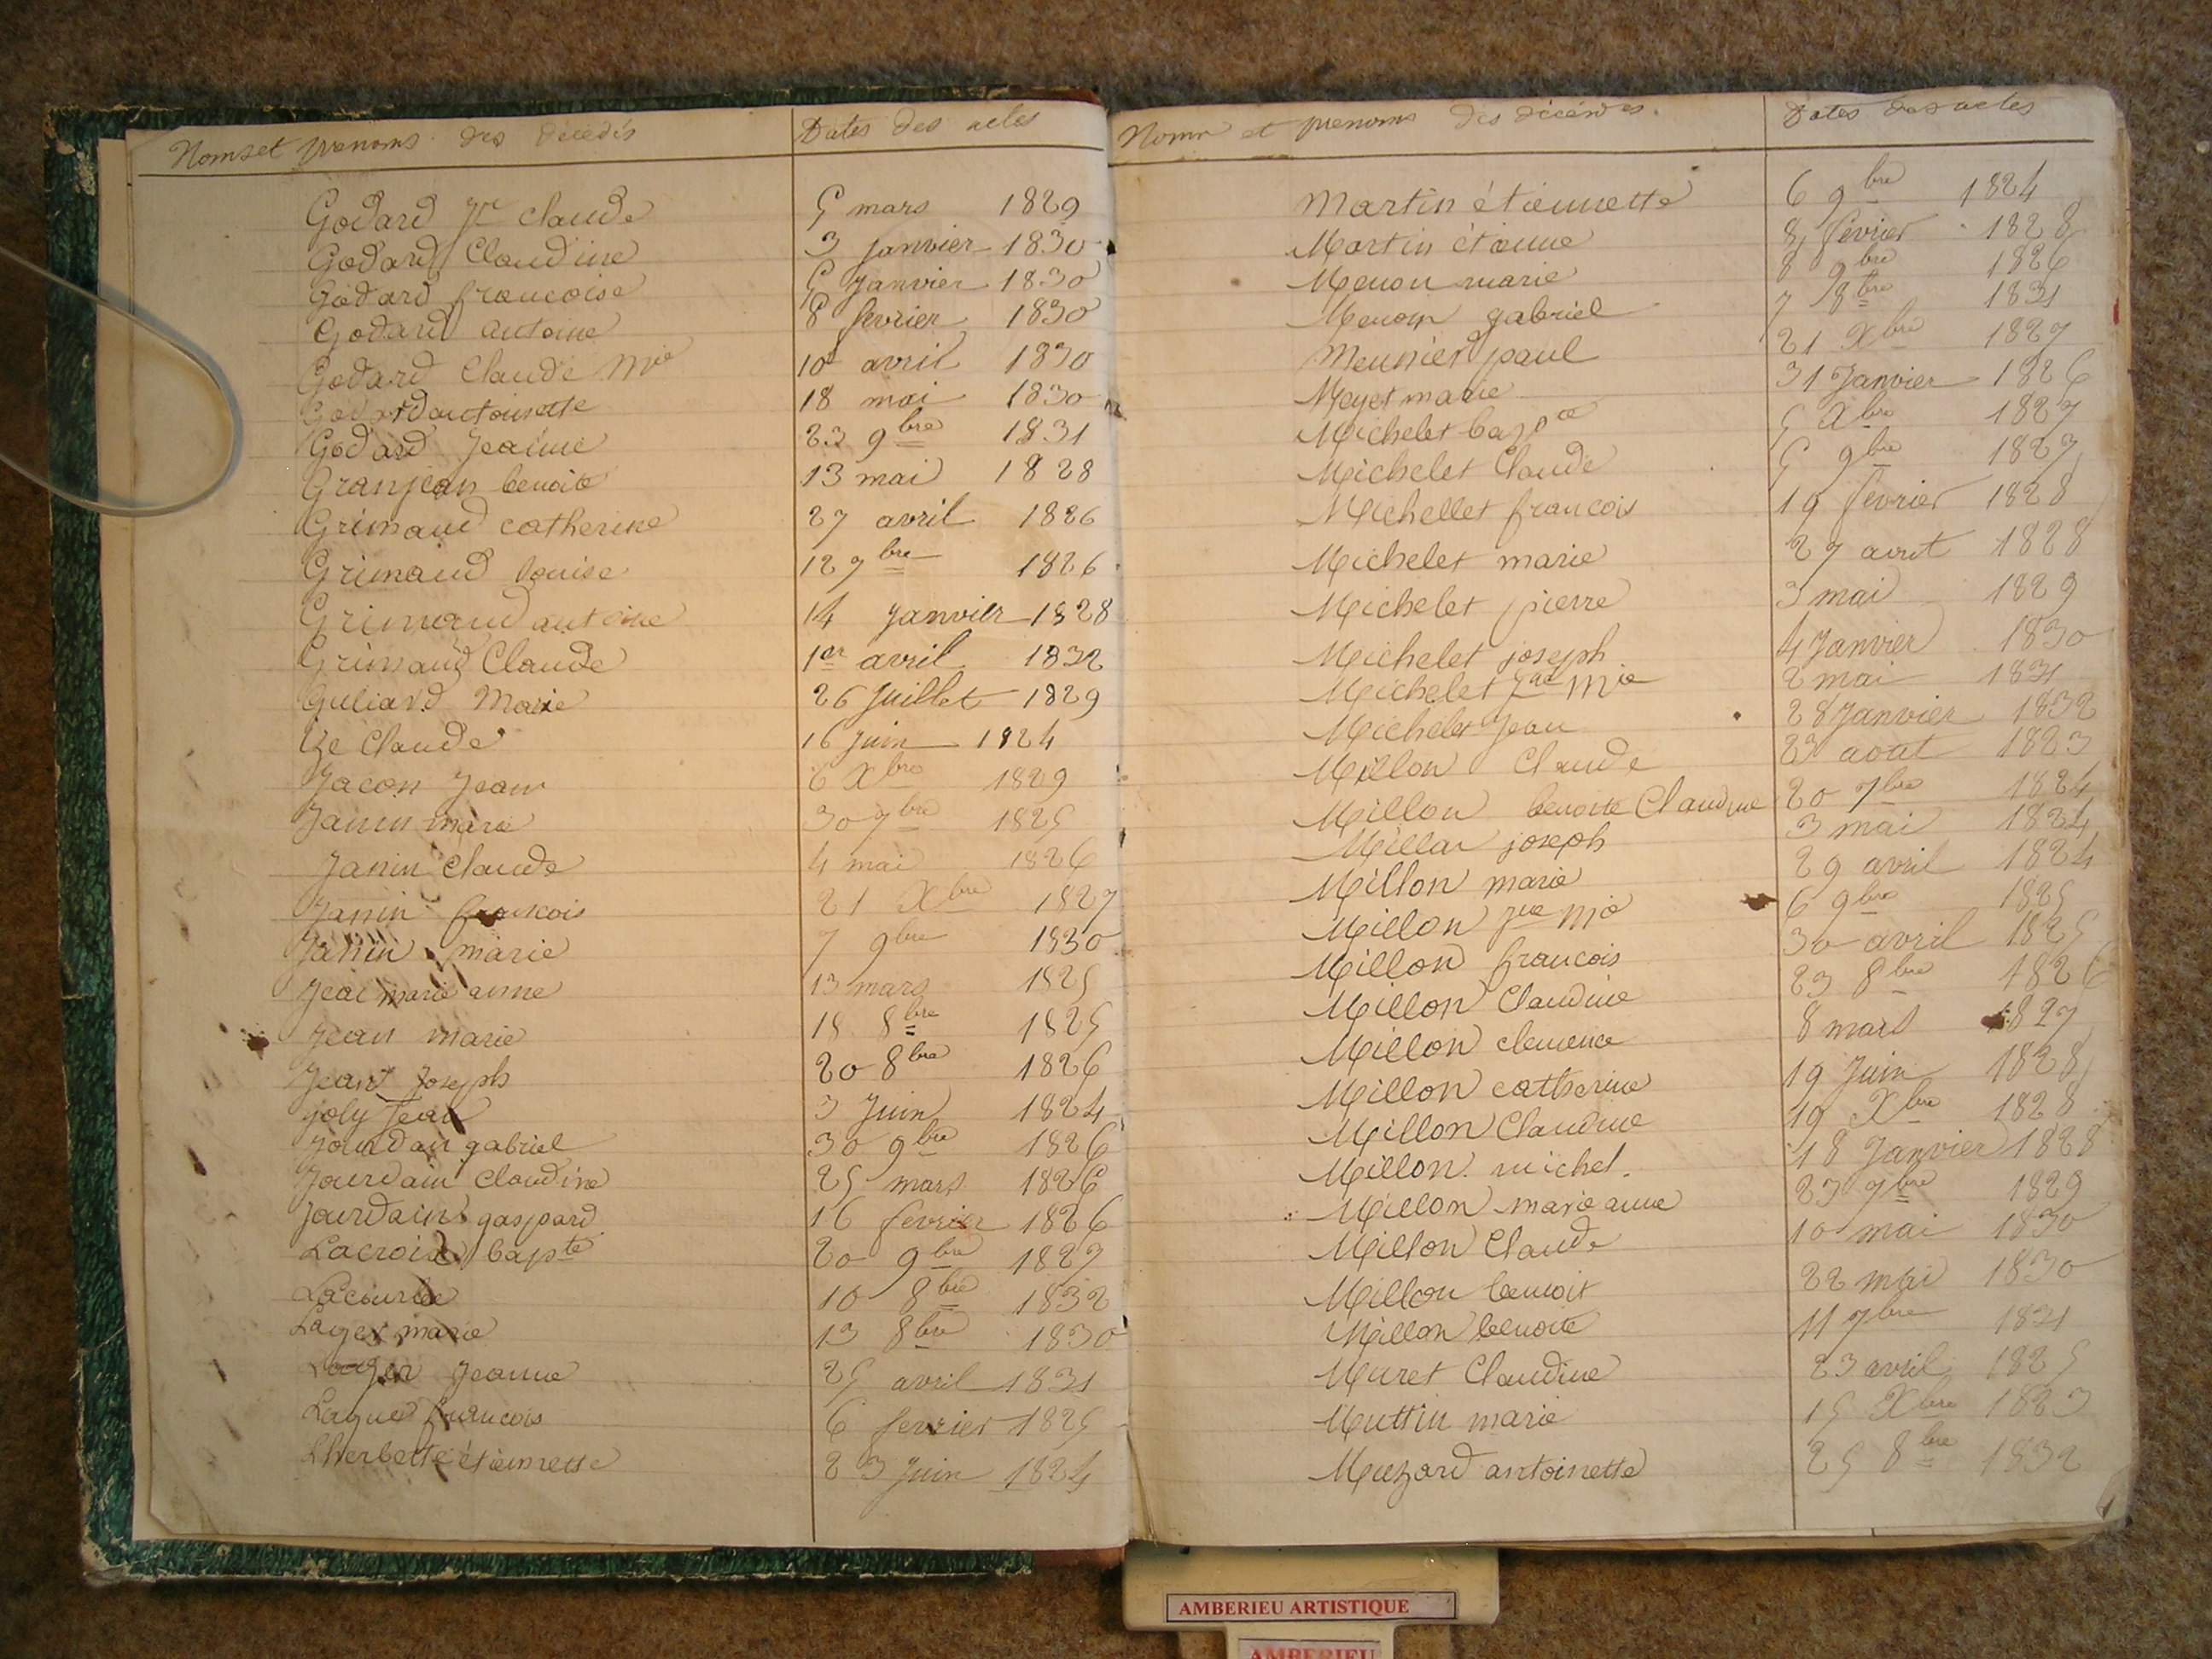 Noms et prenoms des décédés Dates des actes
Godard Jne claude 5 mars 1829
Godard Claudine 3 janvier 1830
Godard francoise 5 Janvier 1830
Godard antoine 8 fevrier 1830
Godard Claude Mie 10 avril 1830
Godard antoinette 18 mai 1830
Godard Jeanne 23 9bre 1831
Granjean benoite 13 mai 1828
Grimaud catherine 27 avril 1826
Grimaud louise 12 7bre 1826
Grimaud antoine 14 Janvier 1828
Grimaud Claude 1er avril 1832
Guliard Marie 26 Juillet 1829
Claude 16 Juin 1824
Jacon Jean 6 Xbre 1829
Janin marie 30 7bre 1825
Janin Claude 4 mai 1826
Janin francois 21 Xbre 1827
Janin marie 7 9bre 1830
marie anne 13 mars 1825
Jean marie 18 8bre 1825
Jean Joseph 20 8bre 1826
joly Jean 3 Juin 1824
Jourdan gabriel 30 9bre 1826
Jourdain Claudine 25 mars 1826
Jourdain gaspard 16 fevrier 1826
Lacroix bapte 20 9bre 1827
Lacourbe 10 8bre 1832
Lager marie 13 8bre 1830
Lager Jeanne 25 avril 1831
Lague francois 6 fevrier 1825
Lherbette étiennette 23 Juin 1824
Noms et prenoms des décédés Dates des actes
Martin étiennette 6 9bre 1824
Martin étienne 8 fevrier 1828
Menou marie 8 9bre 1826
gabriel 7 8bre 1831
Meunier paul 21 Xbre 1827
Meyet marie 31 Janvier 1826
Michelet bapte 5 Xbre 1827
Michelet Claude 5 9bre 1827
Michellet francois 19 fevrier 1828
Michelet marie 27 aout 1828
Michelet pierre 3 mai 1829
Michelet joseph 4 Janvier 1830
Michelet Jne Mie 2 mai 1831
Michelet Jean 28 Janvier 1832
Millon Claude 23 aout 1823
Millon benoite Claudine 20 7bre 1824
Millon joseph 3 mai 1824
Millon marie 29 avril 1824
Millon Jne Mie 6 9bre 1825
Millon francois 30 avril 1825
Millon Claudine 23 8bre 1826
Millon clemence 8 mars 1827
Millon catherine 19 Juin 1828
Millon Claudine 19 Xbre 1828
Millon michel 18 Janvier 1828
Millon marie anne 23 7bre 1829
Millon Claude 10 mai 1830
Millon benoit 22 mai 1830
Millon benoite 11 7bre 1831
Muret Claudine 23 avril 1825
Muttin marie 15 Xbre 1823
Muzard antoinette 25 8bre 1832
AMBERIEU ARTISTIQUE
AMBERIEU